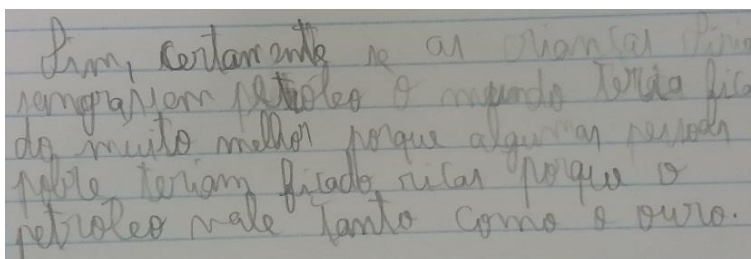 Sim, certamente se as crianças
semgrassem petroleo o mundo teria fica
do muito melhor porque algumas pessoas
pobre teriam ficado ricas porque o
petroleo vale tanto como o ouro.